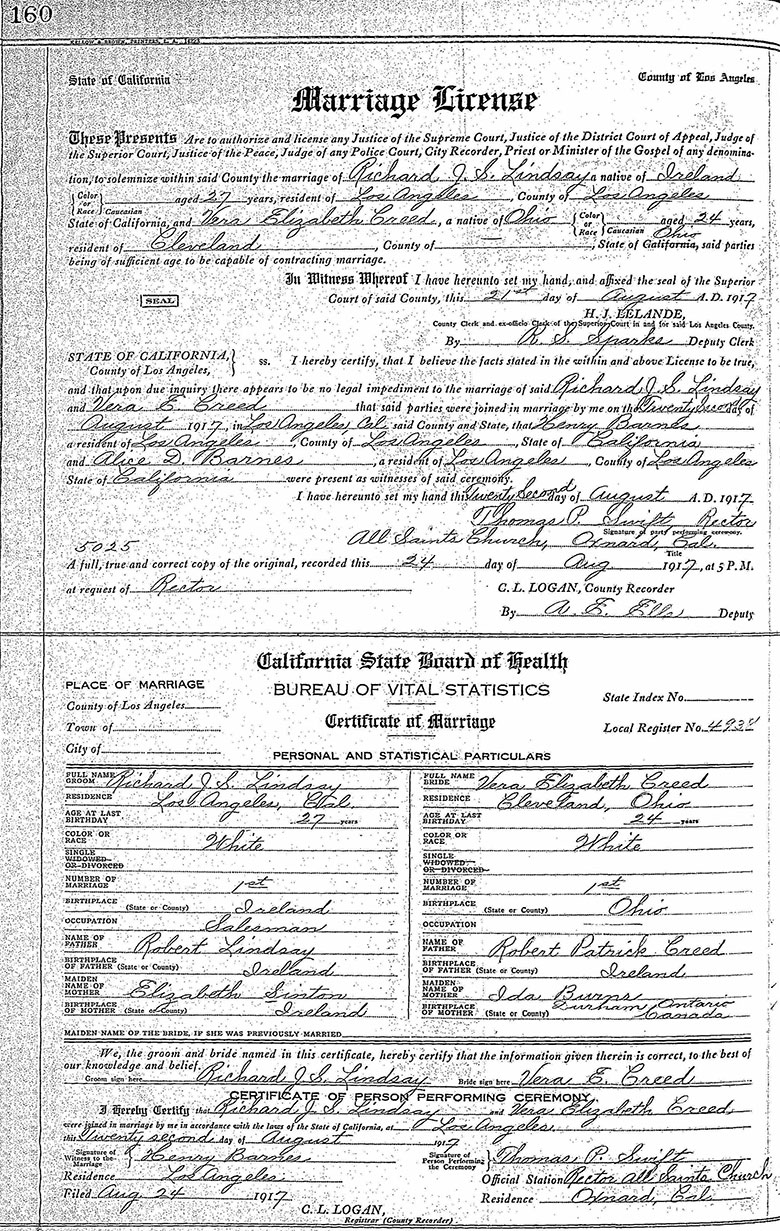 160
KELLOW & BROWN, PRINTERS, L. A.
State of California County of Los Angeles
Marriage License
These Presents Are to authorize and license any Justice of the Supreme Court, Justice of the District Court of Appeal, Judge of
the Superior Court, Justice of the Peace, Judge of any Police Court, City Recorder, Priest or Minister of the Gospel of any denomina-
tion, to solemnize within said County the marriage of Richard J. S. Lindsay a native of Ireland
{Color or Race} Caucasian aged 27 years, resident of Los Angeles, County of Los Angeles
State of California, and Vera Elizabeth Creed, a native of Ohio {Color or Race} Caucasian aged 24 years,
resident of Cleveland, County of —, State of California, Ohio said parties
being of sufficient age to be capable of contracting marriage.
In Witness Whereof I have hereunto set my hand, and affixed the seal of the Superior
SEAL Court of said County, this 21st day of August A. D. 1917
H. J. LELANDE,
County Clerk and ex-officio Clerk of the Superior Court in and for said Los Angeles County.
By R. S. Sparks Deputy Clerk
STATE OF CALIFORNIA, } ss. I hereby certify, that I believe the facts stated in the within and above License to be true,
County of Los Angeles,
and that upon due inquiry there appears to be no legal impediment to the marriage of said Richard J. S. Lindsay
and Vera E. Creed that said parties were joined in marriage by me on the Twenty Second day of
August 1917, in Los Angeles, Cal. said County and State, that Henry Barnes
a resident of Los Angeles, County of Los Angeles, State of California
and Alice D. Barnes, a resident of Los Angeles, County of Los Angeles
State of California were present as witnesses of said ceremony.
I have hereunto set my hand this Twenty Second day of August A. D. 1917
Thomas P. Swift Rector
Signature of party performing ceremony.
5025 All Saints Church, Oxnard, Cal.
Title
A full, true and correct copy of the original, recorded this 24 day of Aug 1917, at 5 P. M.
at request of Rector C. L. LOGAN, County Recorder
By A. E. Ells Deputy
California State Board of Health
PLACE OF MARRIAGE BUREAU OF VITAL STATISTICS State Index No.
County of Los Angeles
Town of Certificate of Marriage Local Register No. 4934
City of
PERSONAL AND STATISTICAL PARTICULARS
FULL NAME GROOM Richard J. S. Lindsay FULL NAME BRIDE Vera Elizabeth Creed
RESIDENCE Los Angeles, Cal. RESIDENCE Cleveland, Ohio
AGE AT LAST BIRTHDAY 27 years AGE AT LAST BIRTHDAY 24 years
COLOR OR RACE White COLOR OR RACE White
SINGLE WIDOWED OR DIVORCED SINGLE WIDOWED OR DIVORCED
NUMBER OF MARRIAGE 1st NUMBER OF MARRIAGE 1st
BIRTHPLACE (State or County) Ireland BIRTHPLACE (State or County) Ohio
OCCUPATION Salesman OCCUPATION
NAME OF FATHER Robert Lindsay NAME OF FATHER Robert Patrick Creed
BIRTHPLACE OF FATHER (State or County) Ireland BIRTHPLACE OF FATHER (State or County) Ireland
MAIDEN NAME OF MOTHER Elizabeth Sinton MAIDEN NAME OF MOTHER Ida Burns
BIRTHPLACE OF MOTHER (State or County) Ireland BIRTHPLACE OF MOTHER (State or County) Durham, Ontario Canada
MAIDEN NAME OF THE BRIDE, IF SHE WAS PREVIOUSLY MARRIED
We, the groom and bride named in this certificate, hereby certify that the information given therein is correct, to the best of
our knowledge and belief.
Groom sign here Richard J. S. Lindsay Bride sign here Vera E. Creed
CERTIFICATE OF PERSON PERFORMING CEREMONY
I Hereby Certify that Richard J. S. Lindsay and Vera Elizabeth Creed
were joined in marriage by me in accordance with the laws of the State of California, at Los Angeles
this Twenty second day of August 1917
Signature of Witness to the Marriage } Henry Barnes Signature of Person Performing the Ceremony } Thomas P. Swift
Residence Los Angeles Official Station Rector All Saints Church
Filed Aug 24 1917 Residence Oxnard, Cal.
C. L. LOGAN,
Registrar (County Recorder)